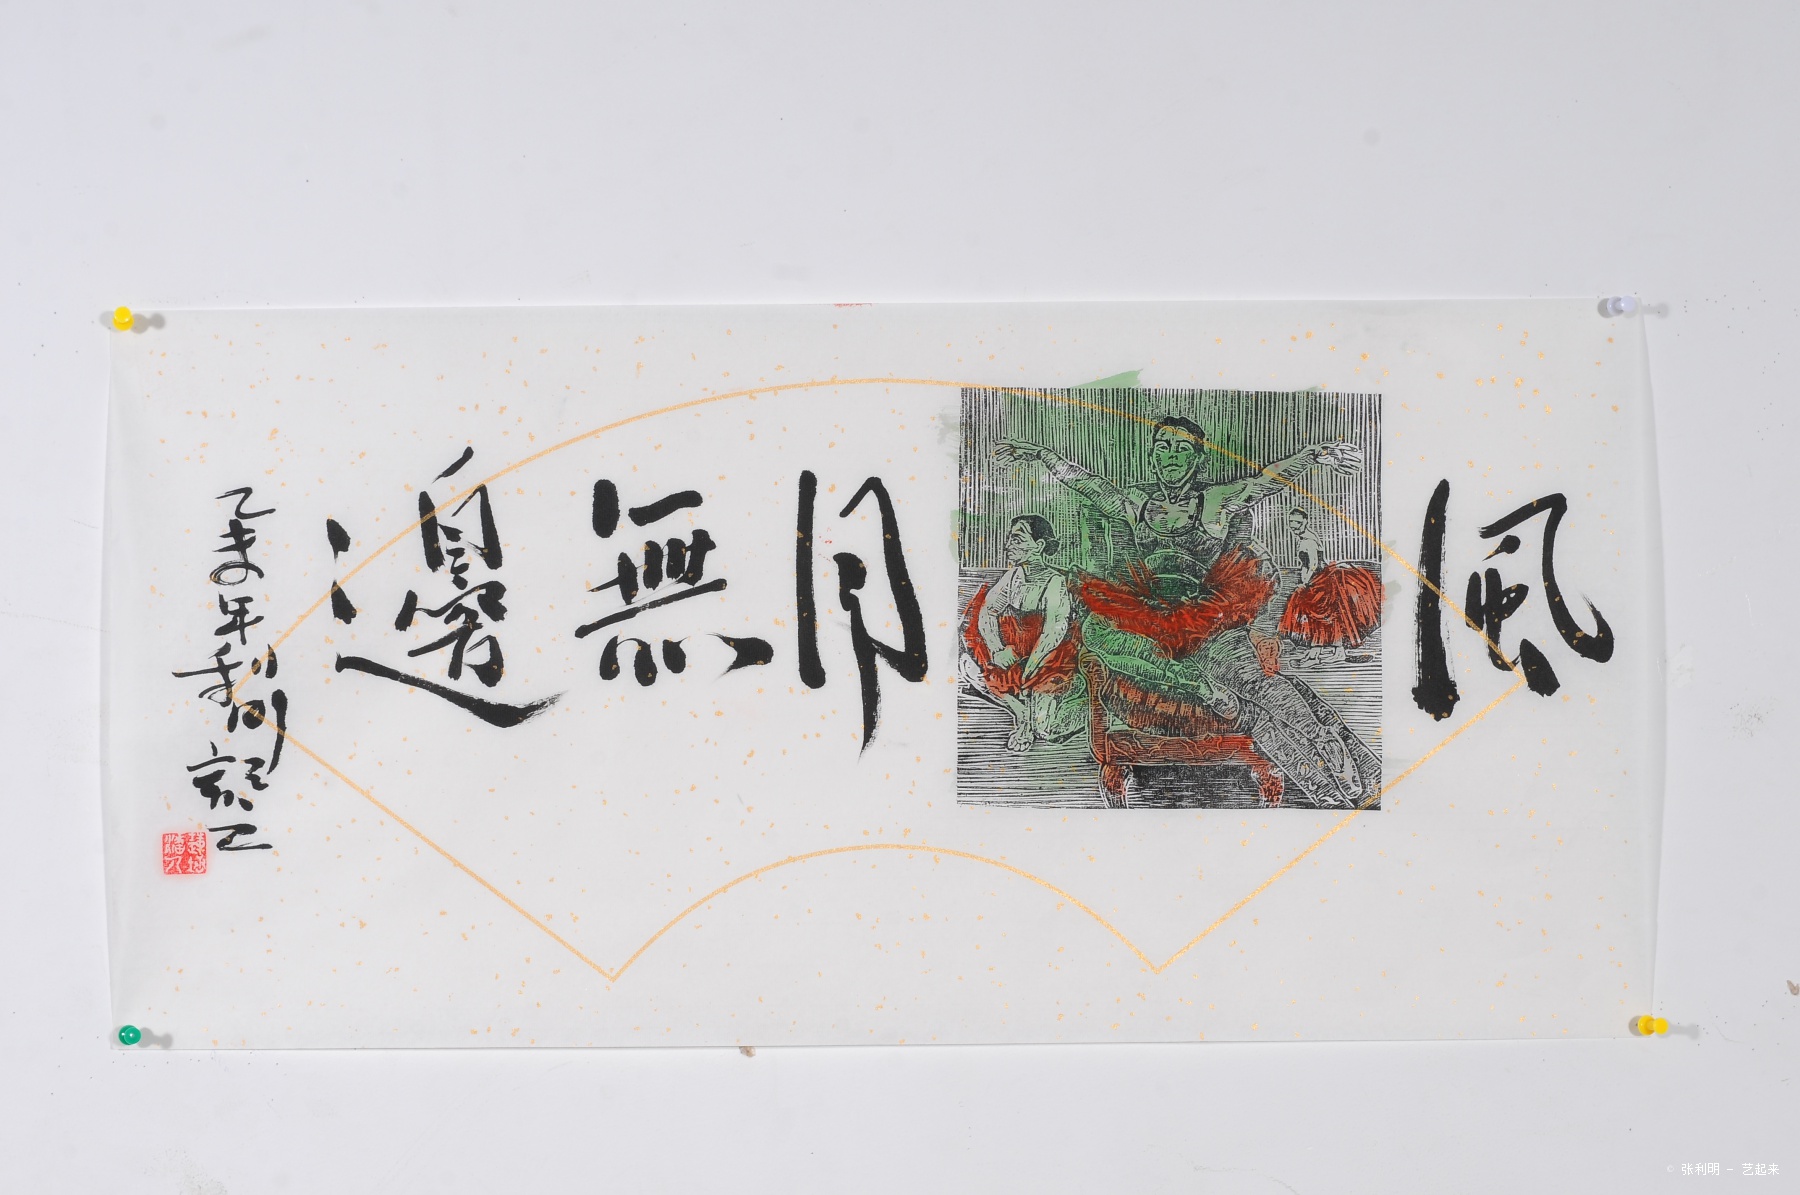 風月無邊
乙巳年利明
© 张利明 - 艺起来